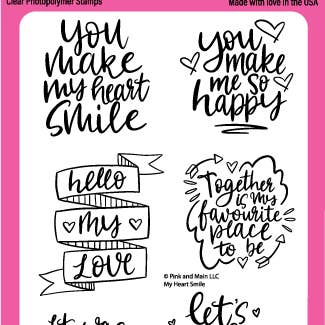 Clear Photopolymer Stamps
Made with love in the USA
you
make
my heart
smile
you
make
me so
happy
hello
my
love
Together
is my
favourite
place
to be
© Pink and Main LLC
My Heart Smile
let's